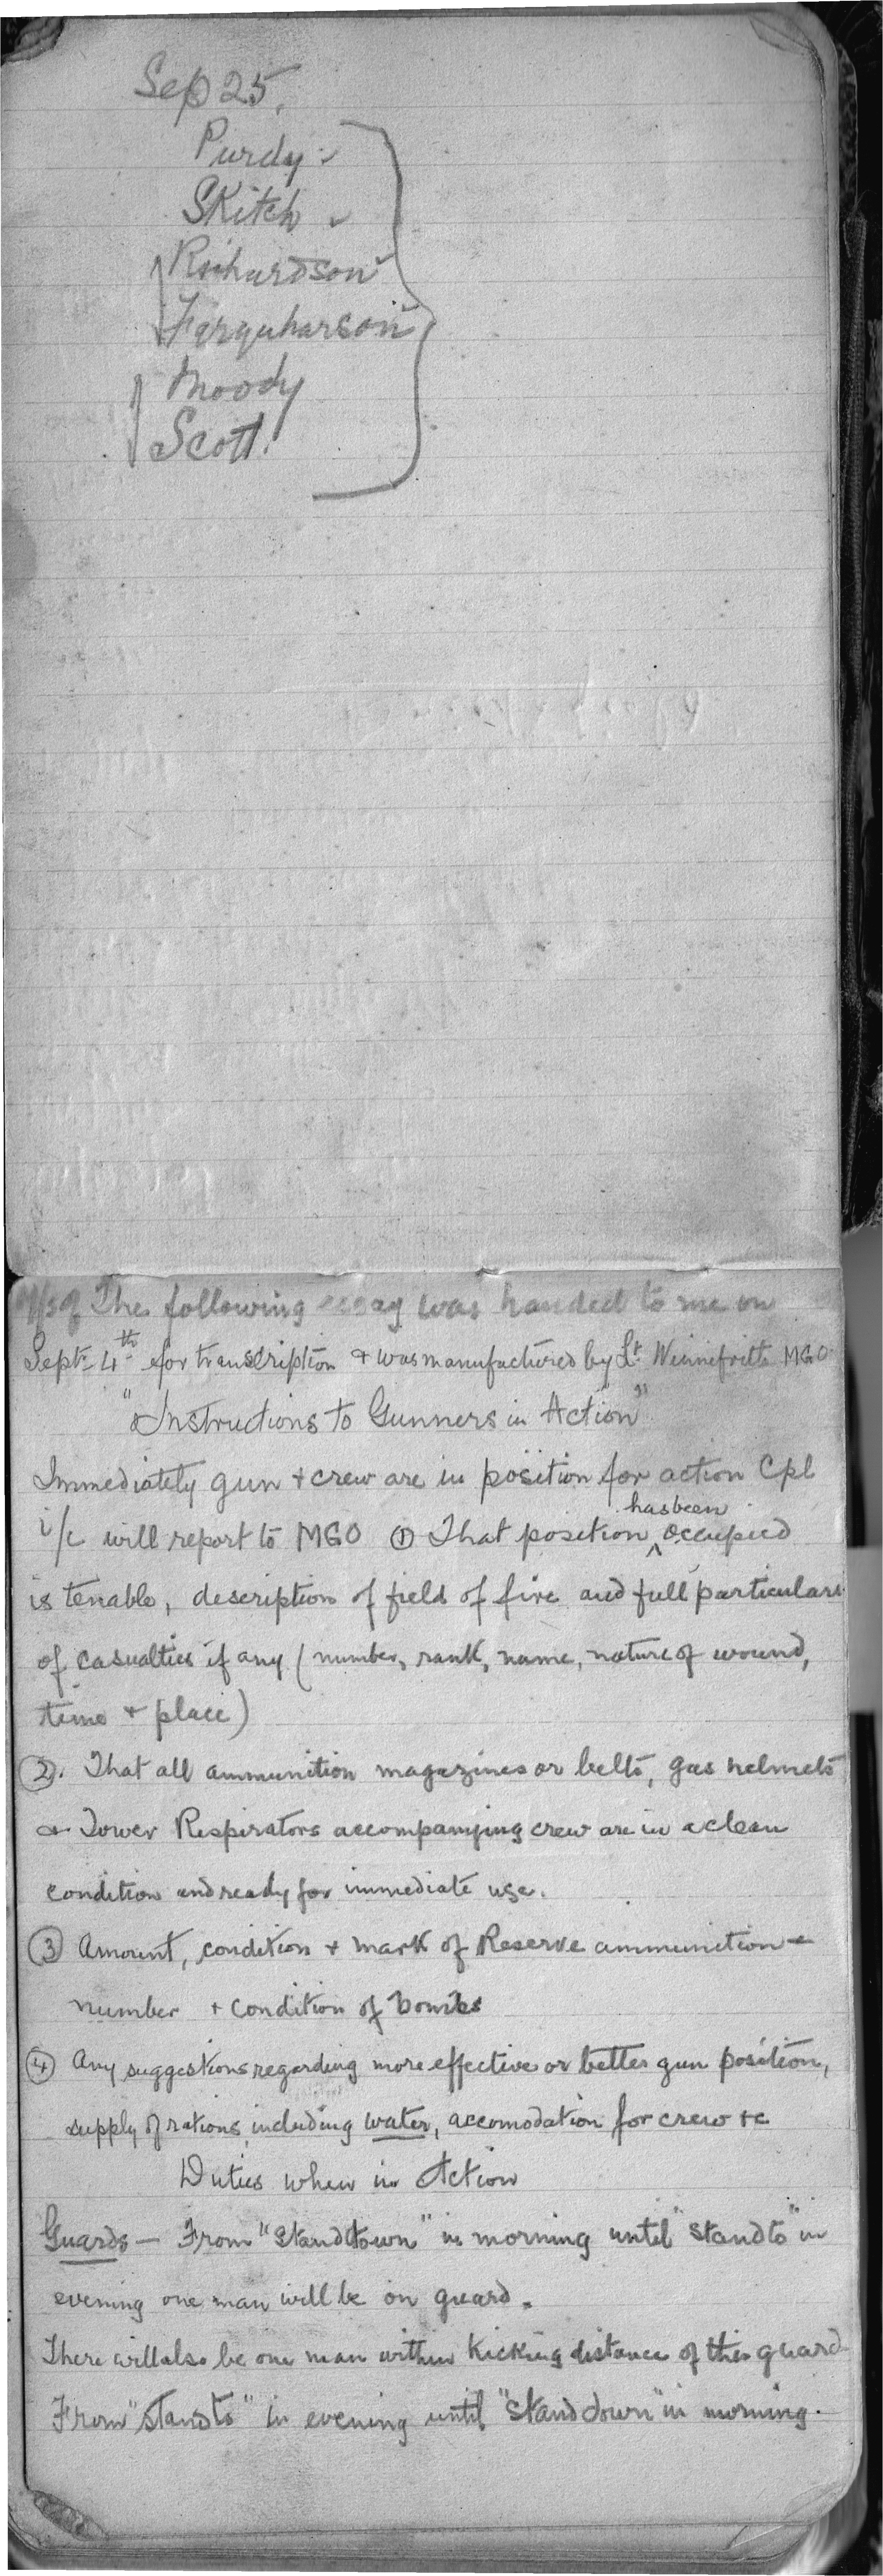 Sep 25.
Purdy
Skitch
Richardson
Farquharson
Moody
Scott.
The following essay was handed to me on
Sept. 4th for transcription & was manufactured by Lt. Winnifrith MGO
"Instructions to Gunners in Action"
Immediately gun & crew are in position for action Cpl
i/c will report to MGO ① That position has been occupied
is tenable, description of field of fire and full particulars
of casualties if any (number, rank, name, nature of wound,
time & place)
②. That all ammunition magazines or belts, gas helmets
& Tower Respirators accompanying crew are in a clean
condition and ready for immediate use.
③ Amount, condition & mark of Reserve ammunition —
number & condition of bombs
④ Any suggestions regarding more effective or better gun position,
supply of rations including water, accomodation for crew &c
Duties when in Action
Guards — From "Stand down" in morning until "stand to" in
evening one man will be on guard.
There will also be one man within kicking distance of this guard
From "stand to" in evening until "Stand down" in morning.